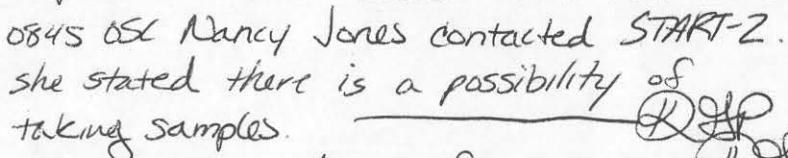 0845 OSC Nancy Jones contacted START-2.
she stated there is a possibility of
taking samples.